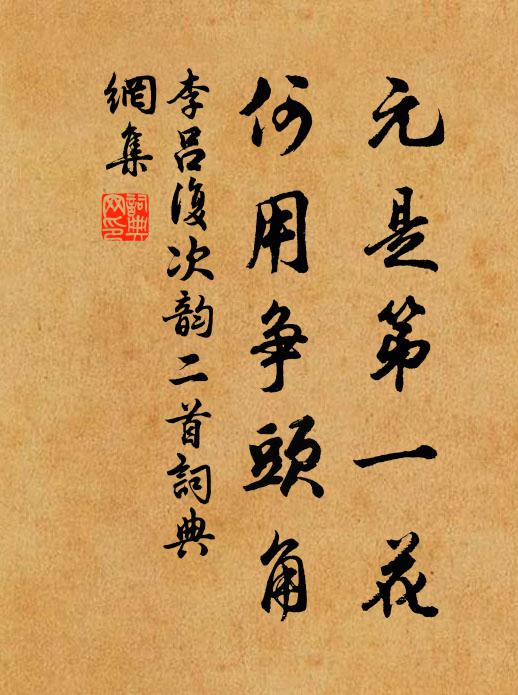 元是第一花
何用争頭角
李吕復次韵二首詞典
網集
詞典
网印